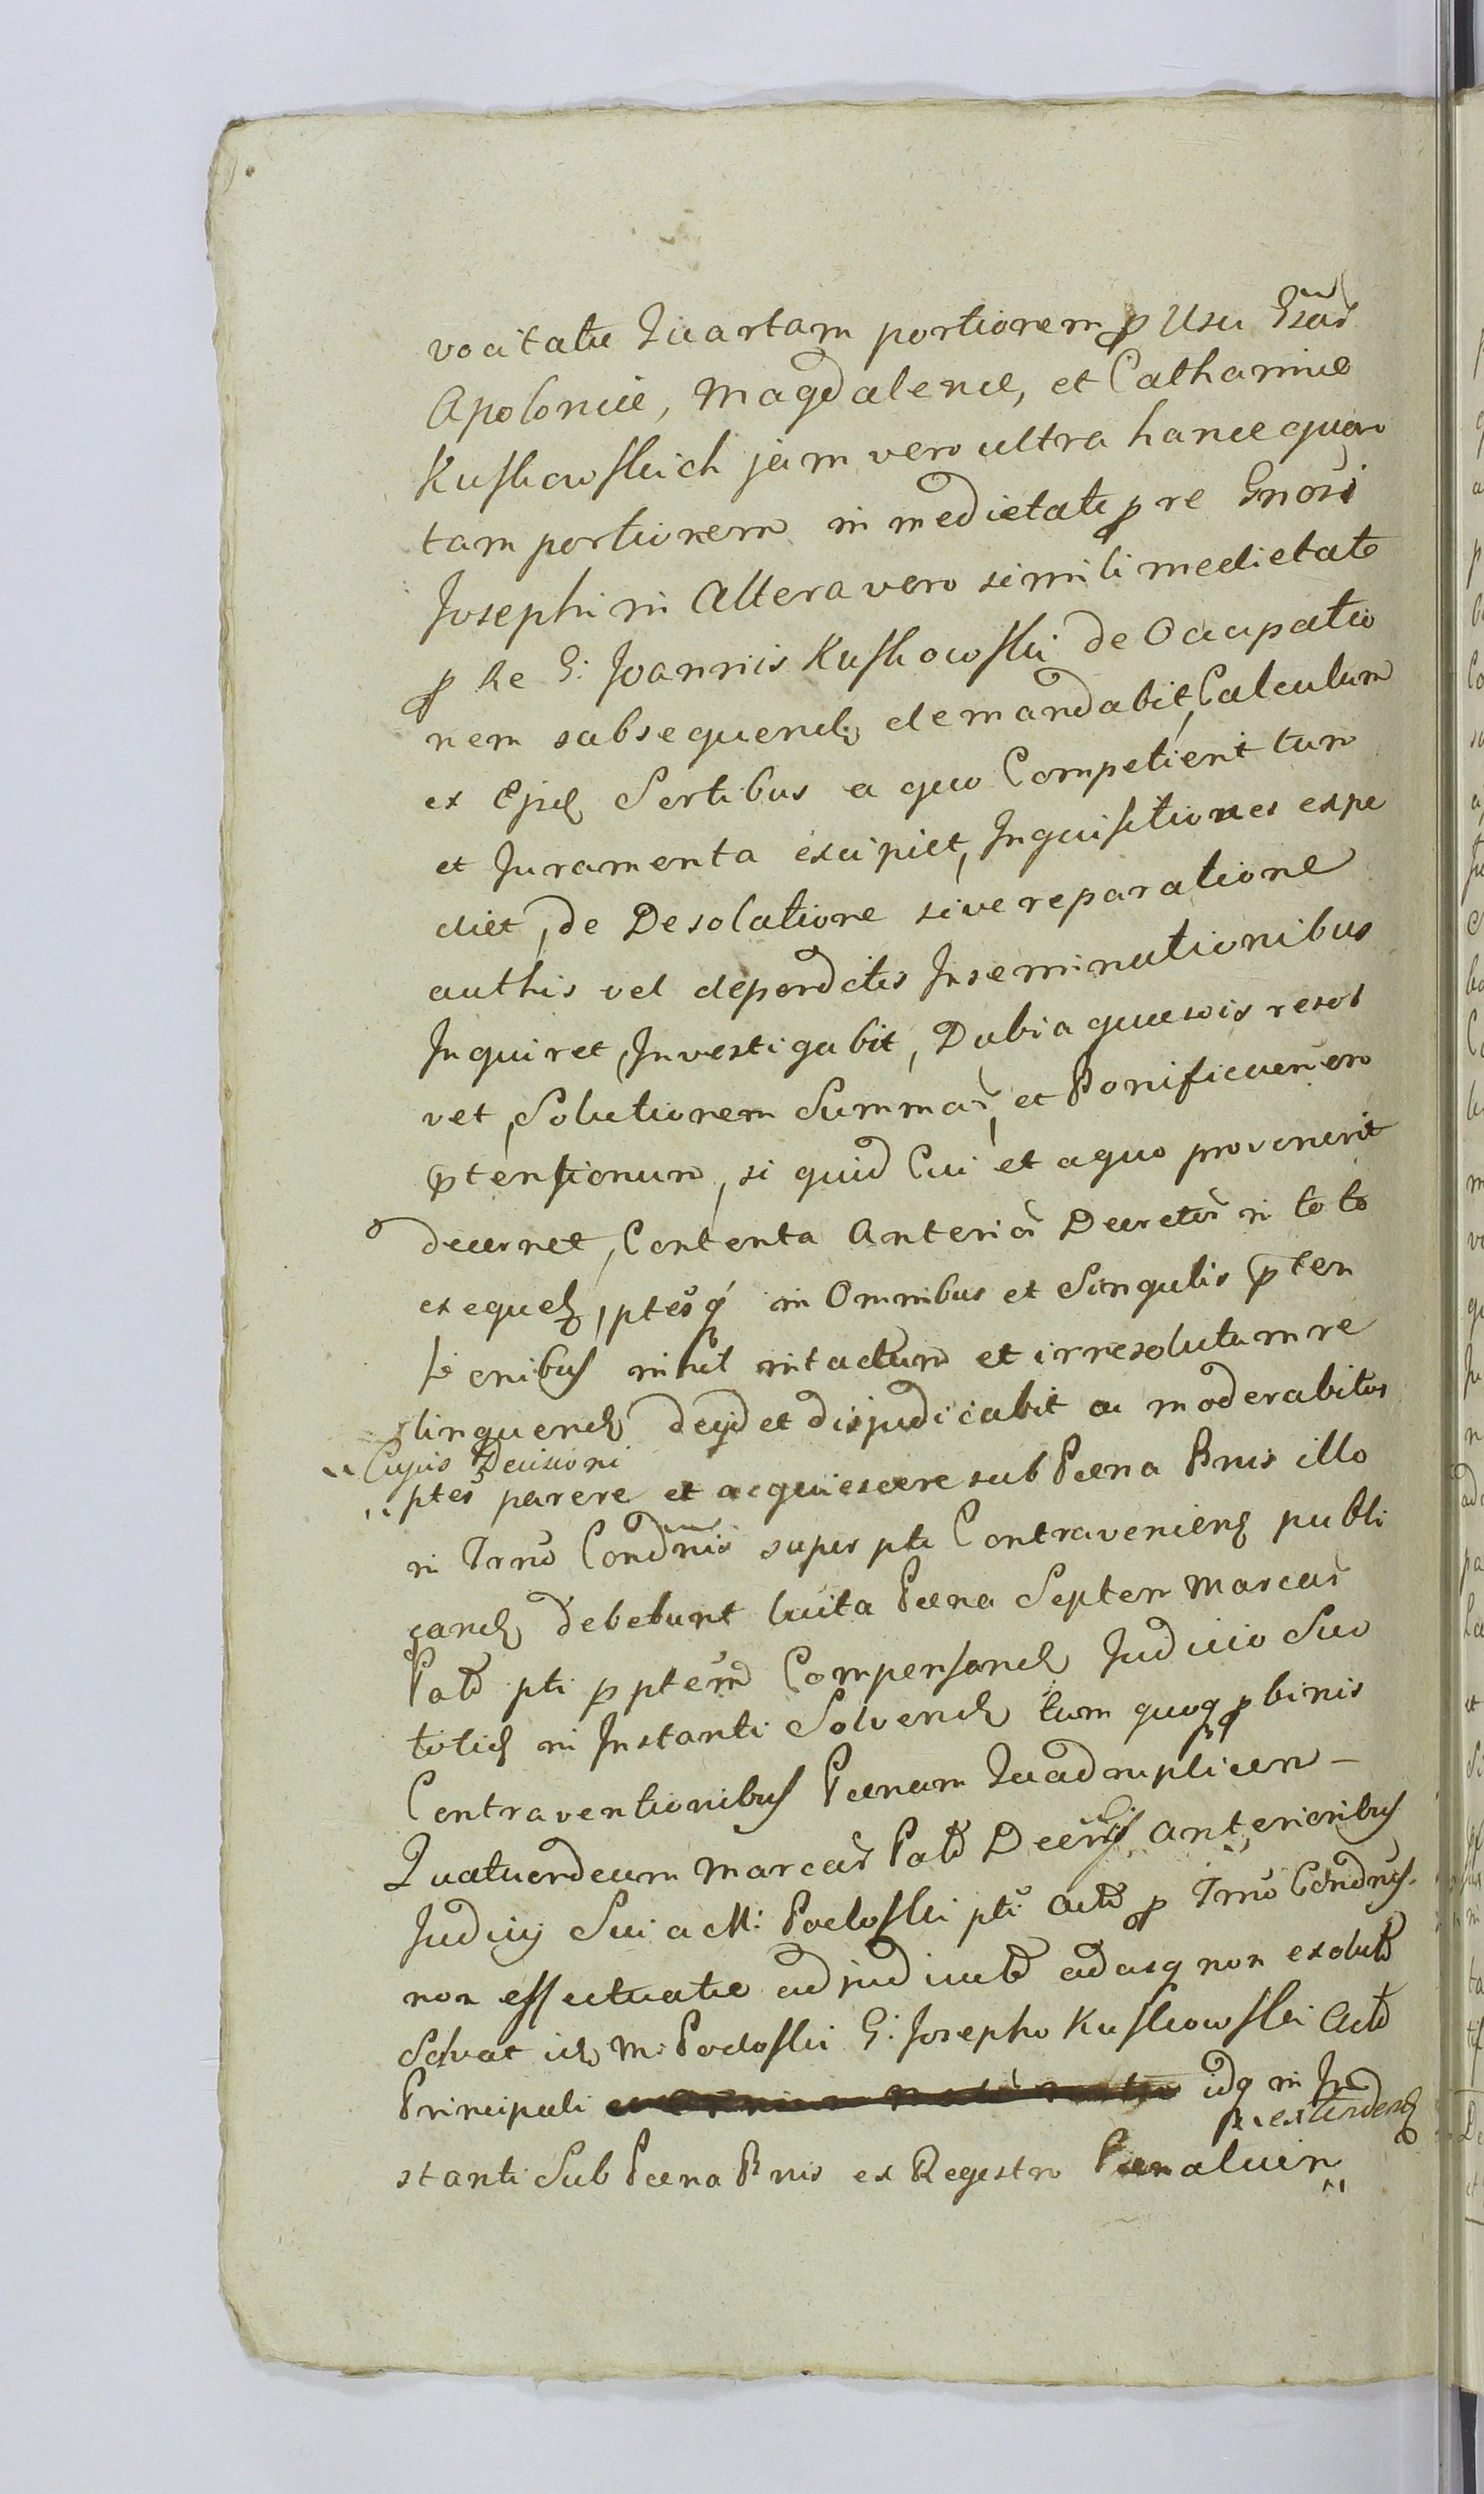 vocitatæ Quartam portionem p Usu Gsar̃
Apoloniæ, Magdalenæ, et Catharinæ
Kuszkowskich jam vero ultra hance quar
tam portionem in medietate p re Gnosi
Josephi in Altera vero simili medietate
p Re G: Joannis Kuszkowski de Occupatio
nem subsequend demandabit, Calculum
ex Ejusd Sortibus a quo Competierit tum
et Juramenta excipiet, Inquisitiones expe
diet, de Desolatione sive reparatione
authis vel deperditis Inseminationibus
Inquiret, Investigabit, Dubia quævis resol
vet, Solutionem Summar̃, et Bonificaõnem
ptensionum, si quid Cui et a quo provenerit
decernet, Contenta Anterior̃ Decretor̃ in toto
exequet, ptesq in Omnibus et Singulis pten
sionibus nihil intactum et irresolutum re
linquend decidet disjudicabit ac moderabitur
Cujus Decisioni
ptes parere et acquiescere sub Pæna Bnis illo
in Trno Condnis super pte Contravenienti publi
cand debebunt luita Pæna Septem Marcar̃
Pol pti p ptem Compensand Judicio Suo
totid in Instanti Solvend tum quoq p binis
Contraventionibus Pænam Quadruplicem
Quatuordecim Marcar̃ Pol Decris anterioribus
Judicij Sui a M: Podoski pti Act p Trno Condnis
non effectuatæ adjudicat adusq non exolut
Solvat id M: Podoski G: Josepho Kuszkowski Act
Principali idq in In
extendend
stanti Sub Pæna Bnis ex Regestro Pænalium